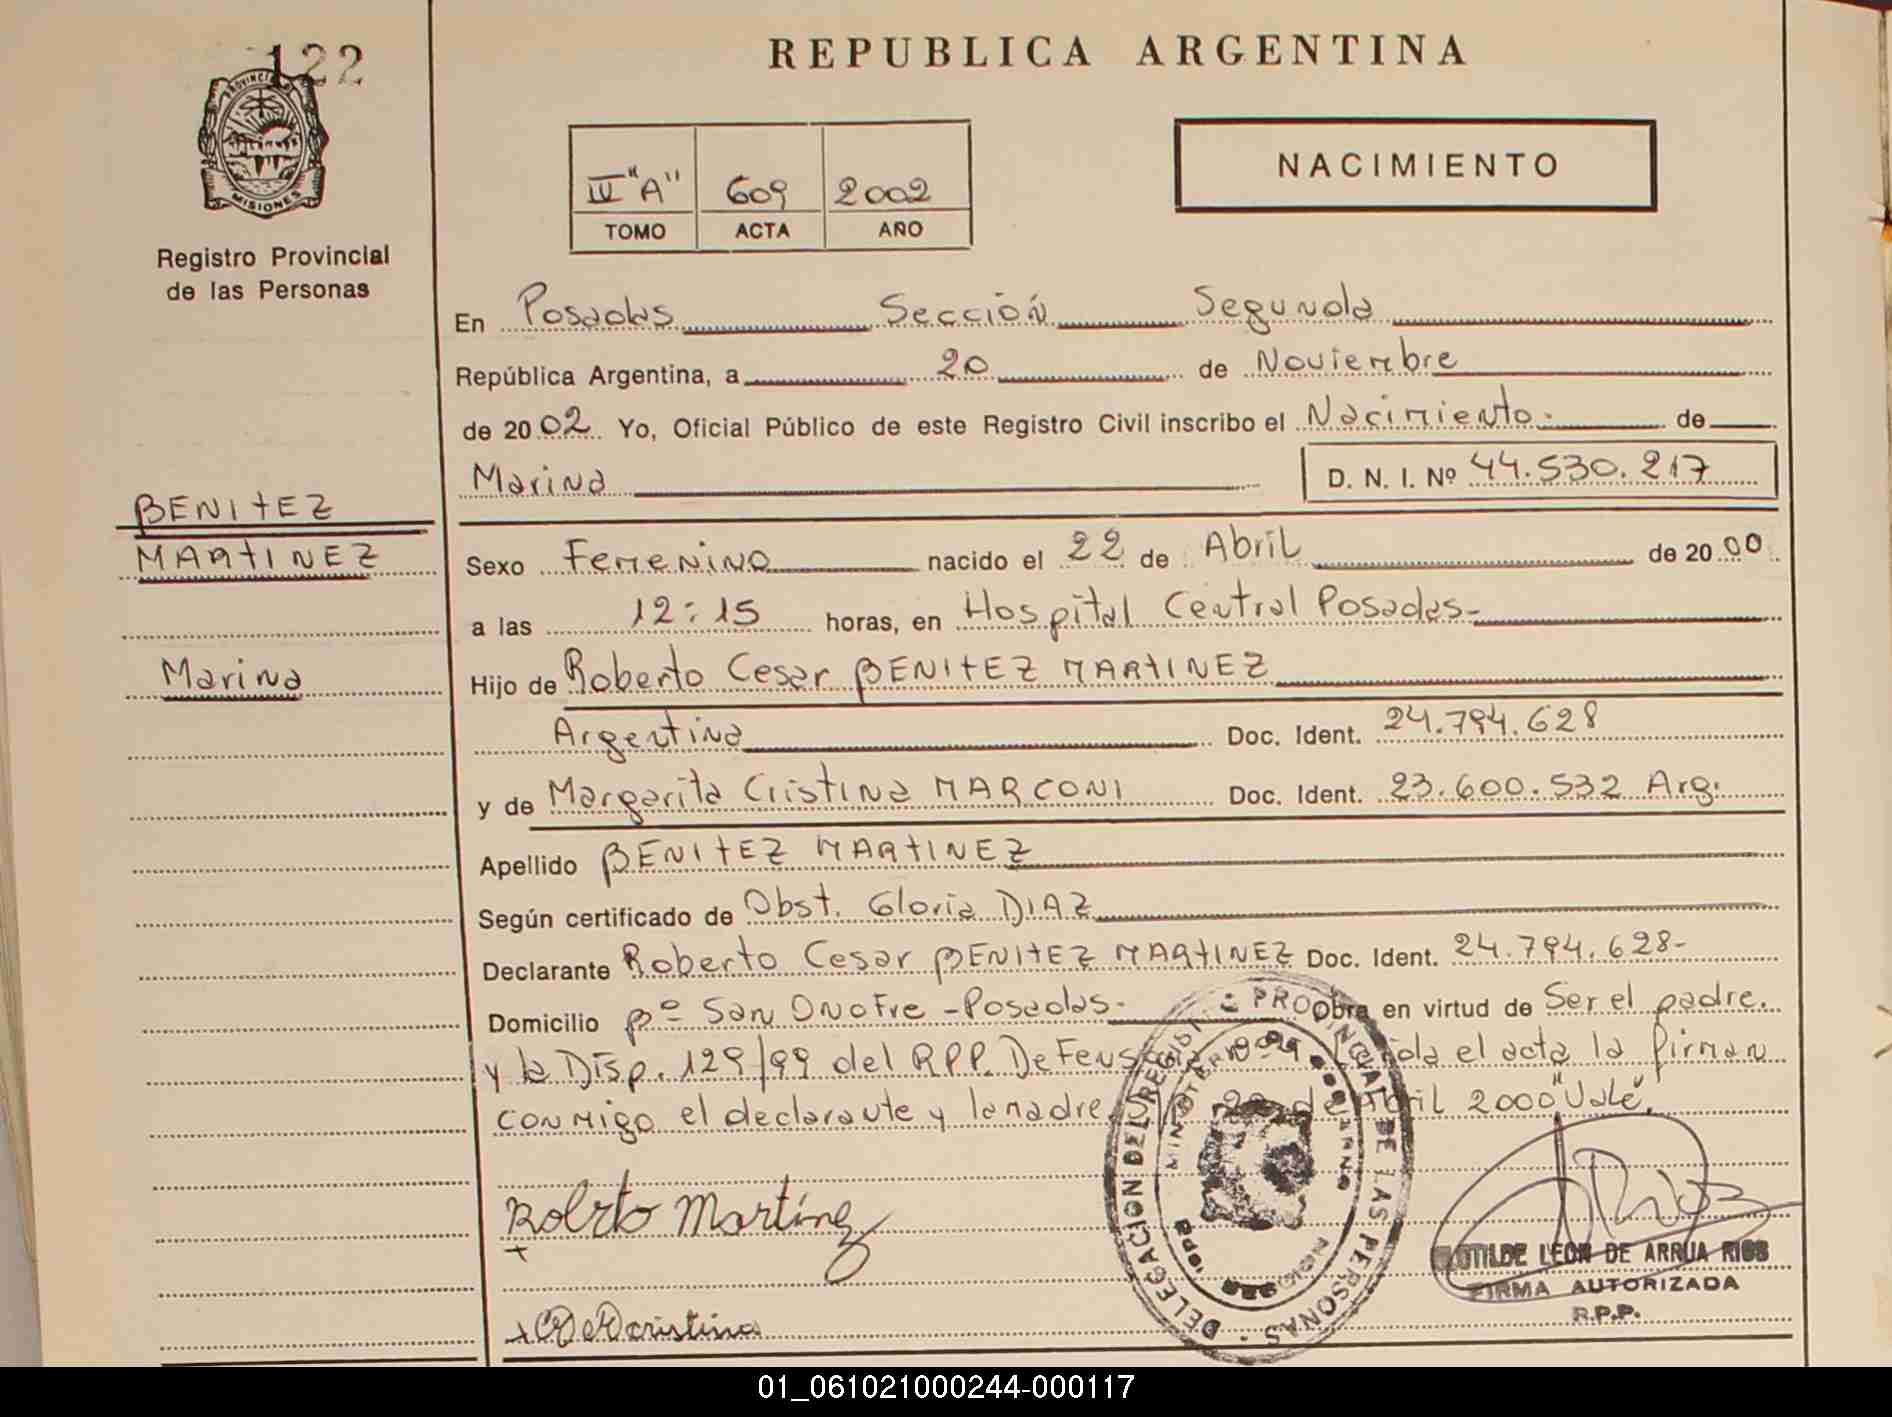 122
PROVINCIA DE
MISIONES
Registro Provincial
de las Personas
REPUBLICA ARGENTINA
IV "A" 609 2002
TOMO ACTA AÑO
NACIMIENTO
En Posadas Sección Segunda
República Argentina, a 20 de Noviembre
de 2002. Yo, Oficial Público de este Registro Civil inscribo el Nacimiento.- de
Marina D. N. I. Nº 44.530.217
BENITEZ
MARTINEZ
Marina
Sexo Femenino nacido el 22 de Abril de 2000
a las 12:15 horas, en Hospital Central Posadas-
Hijo de Roberto Cesar BENITEZ MARTINEZ
Argentina Doc. Ident. 24.794.628
y de Margarita Cristina MARCONI Doc. Ident. 23.600.532 Arg.
Apellido BENITEZ MARTINEZ
Según certificado de Obst. Gloria DIAZ
Declarante Roberto Cesar BENITEZ MARTINEZ Doc. Ident. 24.794.628-
Domicilio Bº San Onofre - Posadas- Obra en virtud de Ser el padre.
y la Disp. 129/99 del R.P.P. el acta la firman
conmigo el declarante y la madre. de Abril 2000 "Vale".
Roberto Martínez
cristina
DELEGACION DEL REGISTRO PROVINCIAL DE LAS PERSONAS
MINISTERIO DE GOBIERNO
LEON DE ARRUA RIOS
FIRMA AUTORIZADA
R.P.P.
01_061021000244-000117